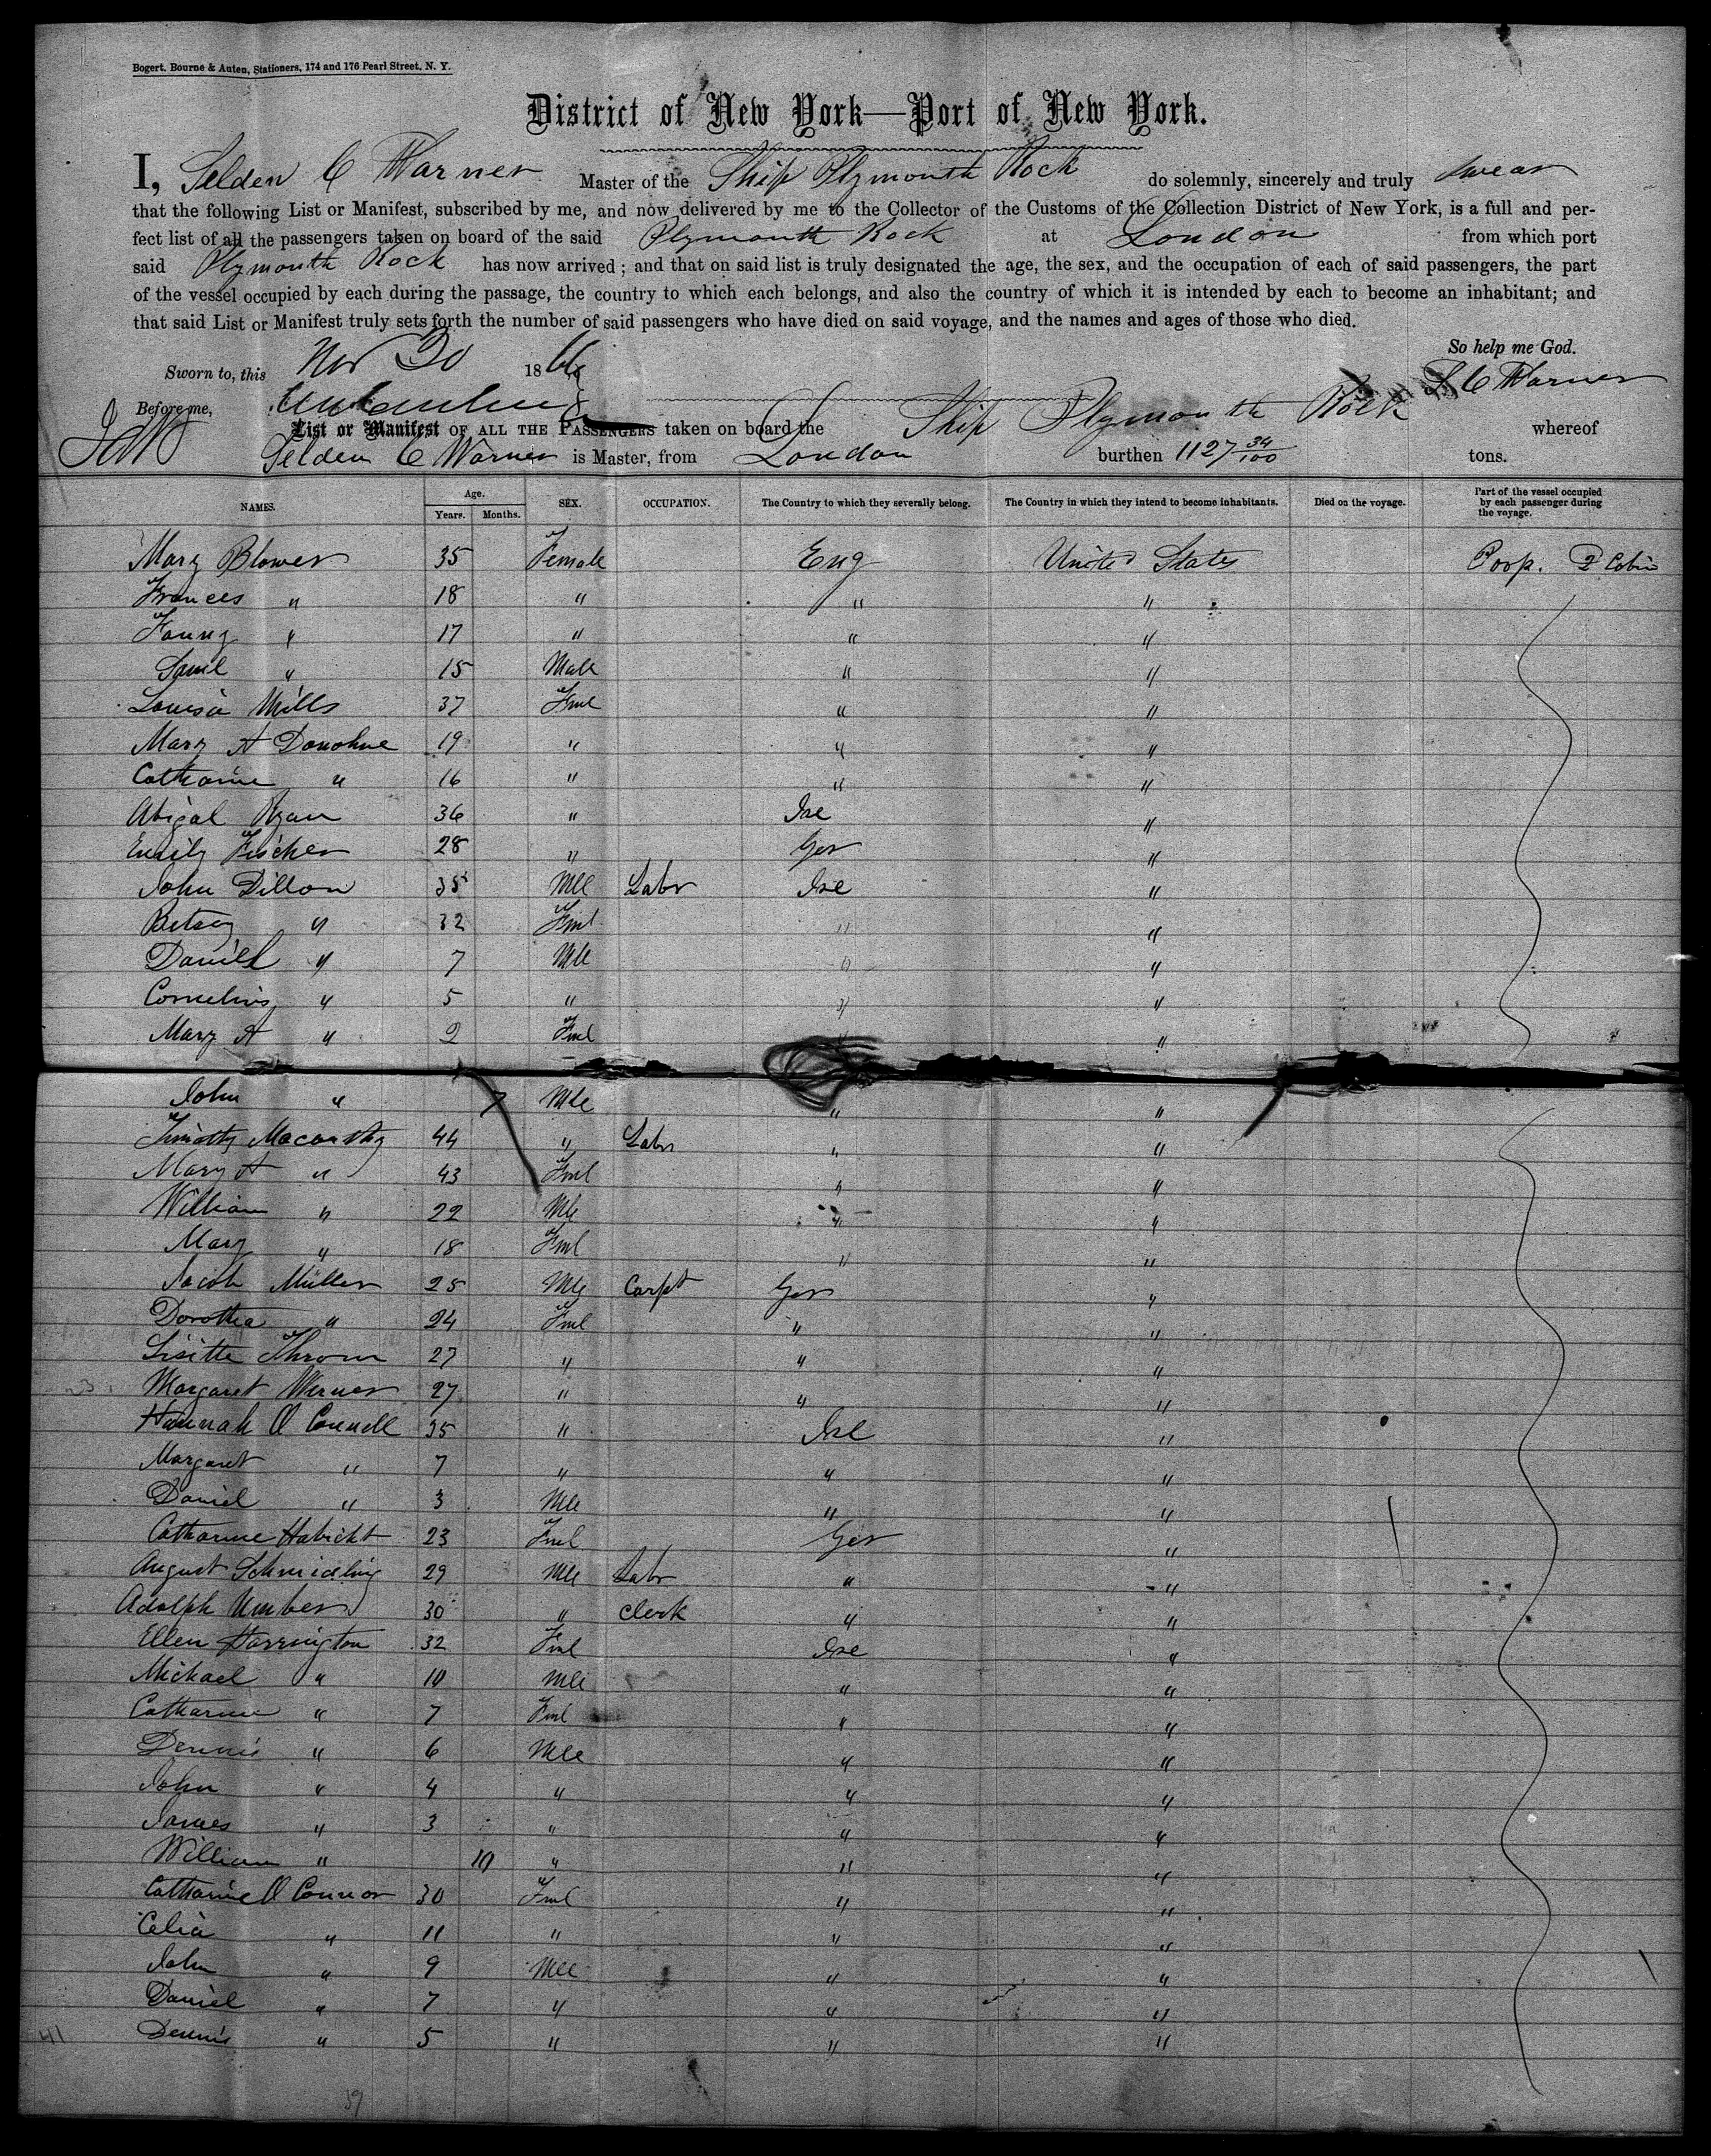 Bogert, Bourne & Auten, Stationers, 174 and 176 Pearl Street, N. Y.
District of New York—Port of New York.
I, Selden C Warner Master of the Ship Plymouth Rock do solemnly, sincerely and truly swear
that the following List or Manifest, subscribed by me, and now delivered by me to the Collector of the Customs of the Collection District of New York, is a full and per-
fect list of all the passengers taken on board of the said Plymouth Rock at London from which port
said Plymouth Rock has now arrived; and that on said list is truly designated the age, the sex, and the occupation of each of said passengers, the part
of the vessel occupied by each during the passage, the country to which each belongs, and also the country of which it is intended by each to become an inhabitant; and
that said List or Manifest truly sets forth the number of said passengers who have died on said voyage, and the names and ages of those who died.
So help me God.
Sworn to, this Nov 30 1866
S C Warner
Before me,
List or Manifest OF ALL THE PASSENGERS taken on board the Ship Plymouth Rock whereof
Selden C Warner is Master, from London burthen 1127 34/100 tons.
NAMES. Age. Years. Months. SEX. OCCUPATION. The Country to which they severally belong. The Country in which they intend to become inhabitants. Died on the voyage. Part of the vessel occupied by each passenger during the voyage.
Mary Blower 35 Female Eng United States Poop. 2 Cabin
Frances " 18 " " "
Fanny " 17 " " "
Saml " 15 Male " "
Louisa Mills 37 Fml " "
Mary A Donohue 19 " " "
Catharine " 16 " " "
Abigal Ryan 36 " Ire "
Emily Fischer 28 " Ger "
John Dillon 35 Mle Labr Ire "
Betsey " 32 Fml " "
Daniel " 7 Mle " "
Cornelius " 5 " " "
Mary A " 2 Fml " "
John " 7 Mle " "
Timothy Macarthy 44 " Labr " "
Mary A " 43 Fml " "
William " 22 Mle " "
Mary " 18 Fml " "
Jacob Müller 25 Mle Carpt Ger "
Dorothea " 24 Fml " "
Lisitte Throm 27 " " "
Margaret Werner 27 " " "
Hannah O Connell 35 " Irl "
Margaret " 7 " " "
Daniel " 3 Mle " "
Catharine Habicht 23 Fml Ger "
August Schmidling 29 Mle Labr " "
Adolph Umber 30 " Clerk " "
Ellen Harrington 32 Fml Ire "
Michael " 10 Mle " "
Catharine " 7 Fml " "
Dennis " 6 Mle " "
John " 4 " " "
James " 3 " " "
William " 10 " " "
Catharine O Connor 30 Fml " "
Celia " 11 " " "
John " 9 Mle " "
Daniel " 7 " " "
41 Dennis " 5 " " "